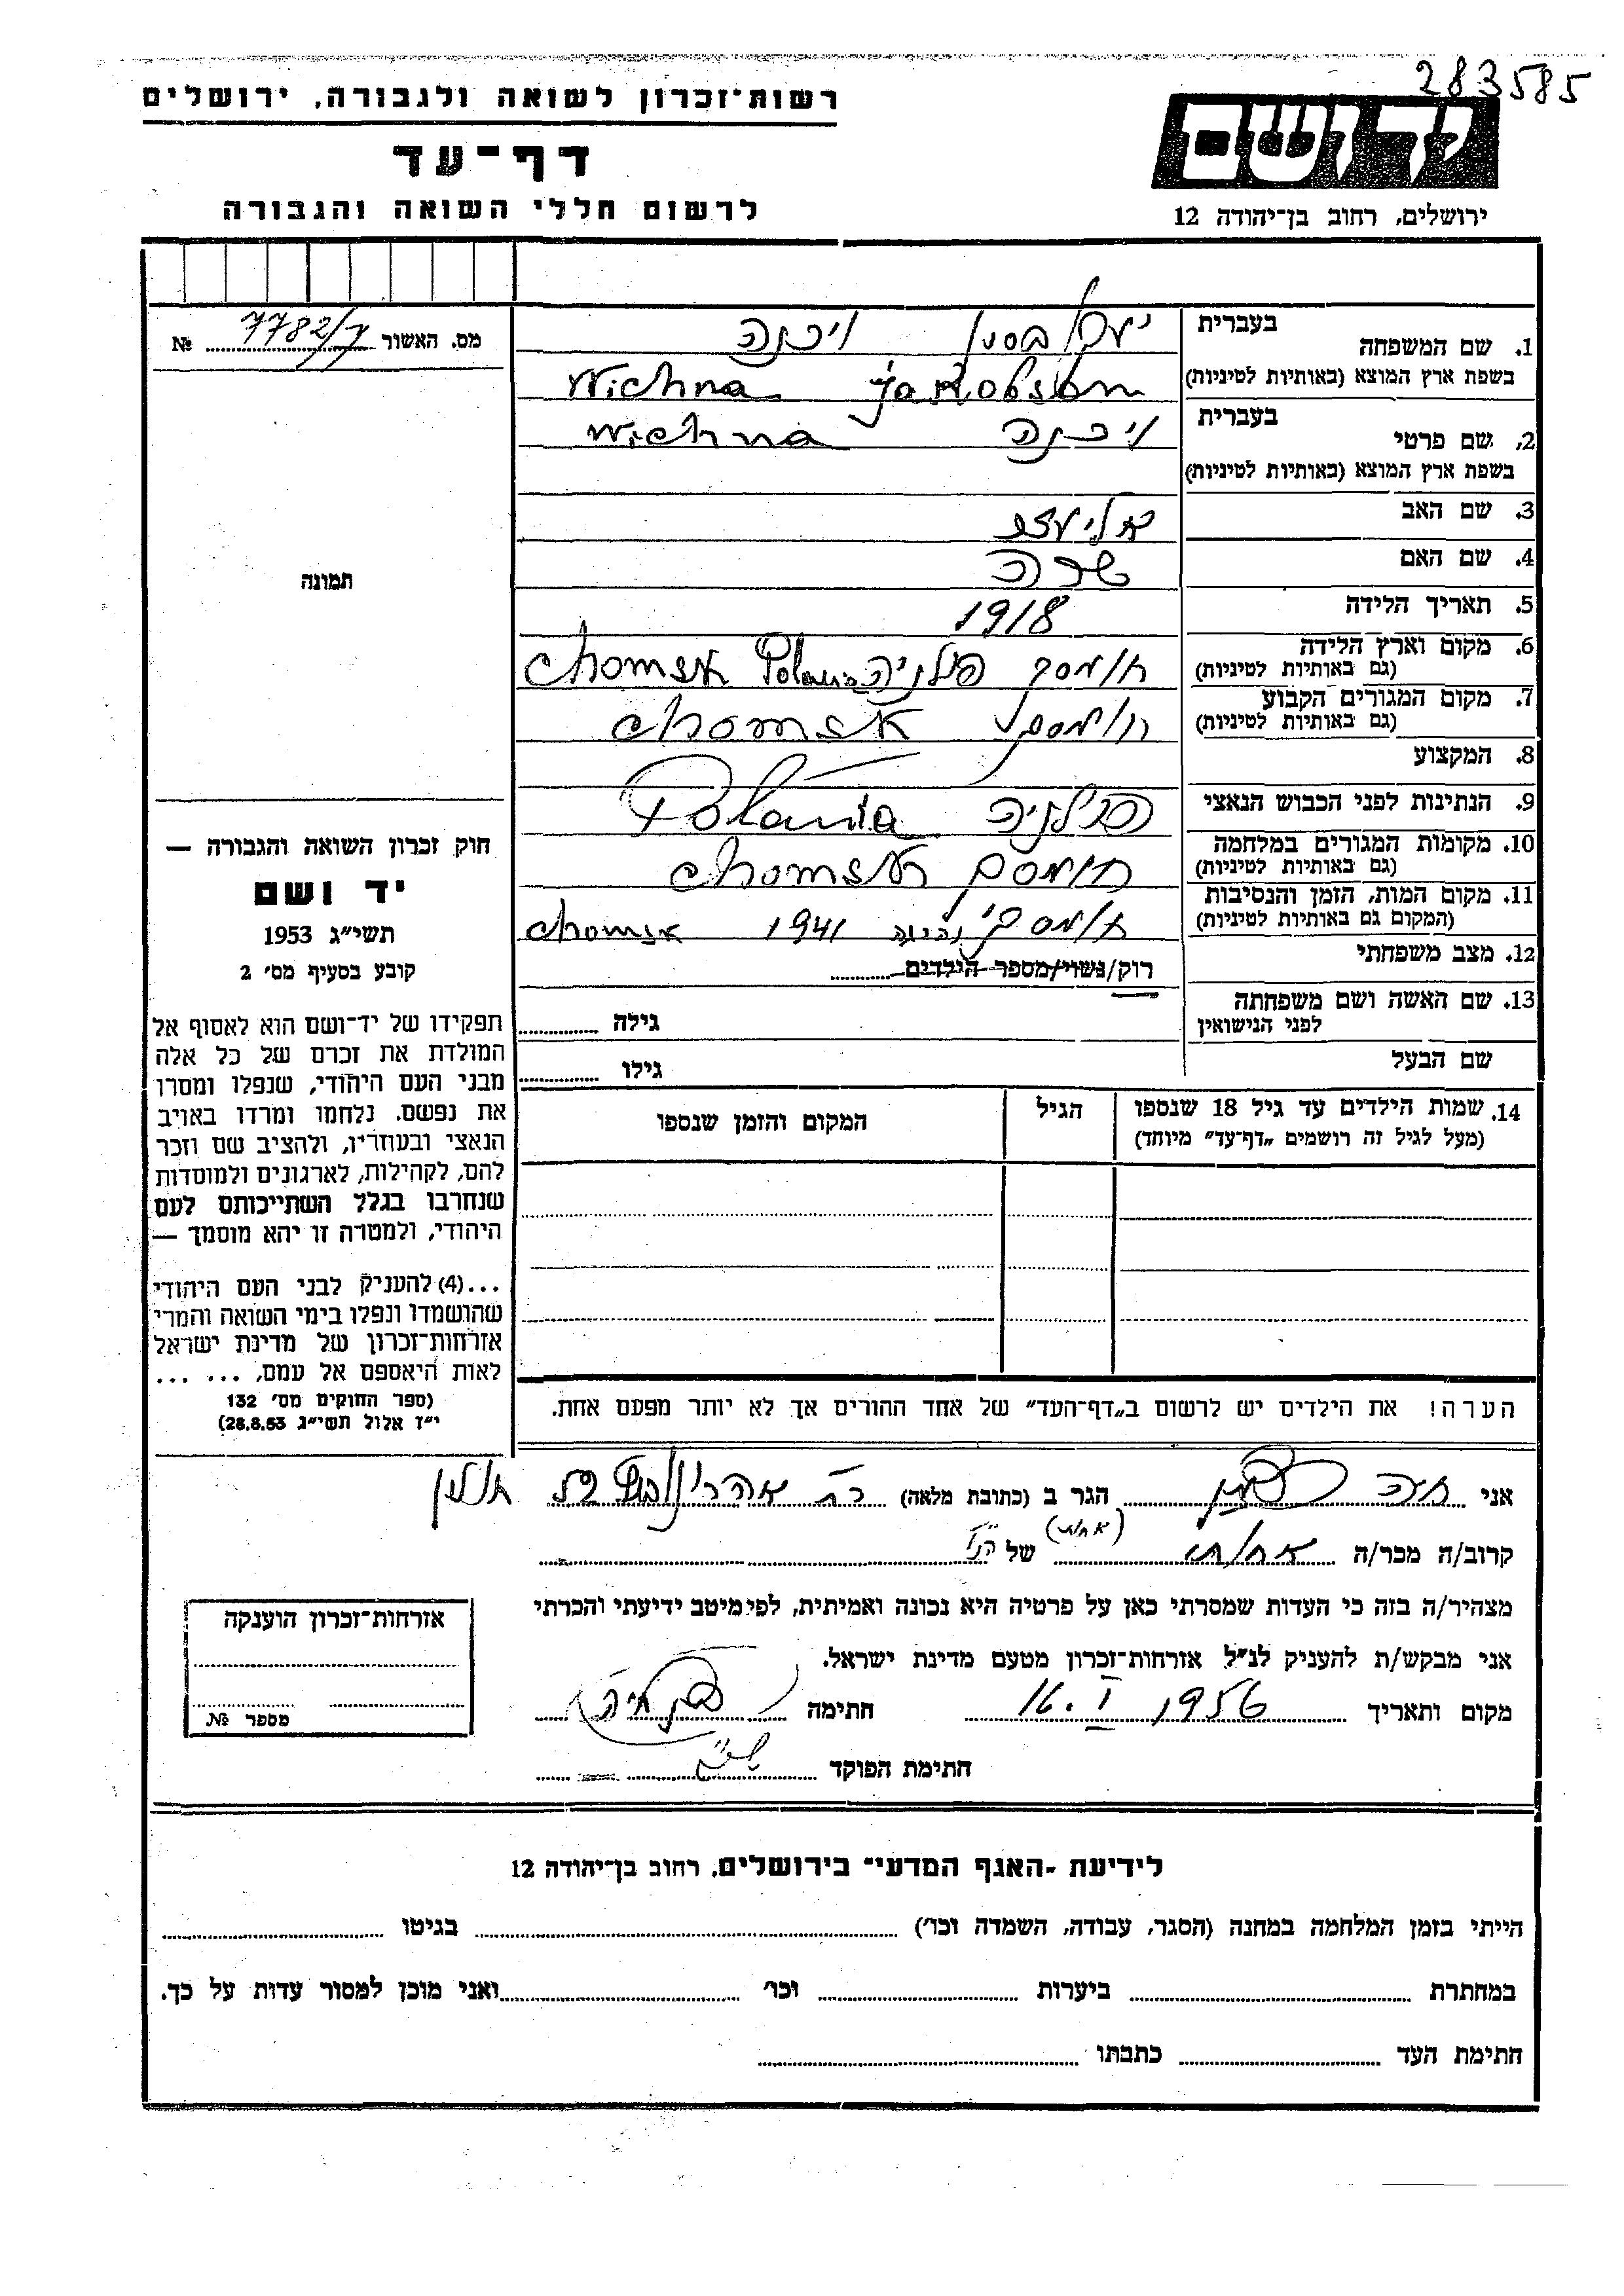 283585
רשות־זכרון לשואה ולגבורה, ירושלים
יד ושם
דף־עד
לרשום חללי השואה והגבורה
ירושלים, רחוב בן־יהודה 12
מס. האשור 7782/7 №
בעברית
1. שם המשפחה
יעקובסון ויכנה
בשפת ארץ המוצא (באותיות לטיניות)
Wichna Jakobson
בעברית
2. שם פרטי
ויכנה Wichna
בשפת ארץ המוצא (באותיות לטיניות)
3. שם האב
אליעזר
4. שם האם
שרה
5. תאריך הלידה
1918
6. מקום וארץ הלידה
(גם באותיות לטיניות)
חומסק פולניה Polania Chomsk
7. מקום המגורים הקבוע
(גם באותיות לטיניות)
חומסק Chomsk
8. המקצוע
9. הנתינות לפני הכבוש הנאצי
פולניה Polania
10. מקומות המגורים במלחמה
(גם באותיות לטיניות)
חומסק Chomsk
11. מקום המות, הזמן והנסיבות
(המקום גם באותיות לטיניות)
חומסק 1941 Chomsk
12. מצב משפחתי
רוק/נשוי/מספר הילדים
13. שם האשה ושם משפחתה
לפני הנישואין
גילה
שם הבעל
גילו
14. שמות הילדים עד גיל 18 שנספו
(מעל לגיל זה רושמים „דף־עד” מיוחד)
הגיל
המקום והזמן שנספו
תמונה
חוק זכרון השואה והגבורה —
יד ושם
תשי״ג 1953
קובע בסעיף מס׳ 2
תפקידו של יד־ושם הוא לאסוף אל
המולדת את זכרם של כל אלה
מבני העם היהודי, שנפלו ומסרו
את נפשם. נלחמו ומרדו באויב
הנאצי ובעוזריו, ולהציב שם וזכר
להם, לקהילות, לארגונים ולמוסדות
שנחרבו בגלל השתייכותם לעם
היהודי, ולמטרה זו יהא מוסמך —
...(4) להעניק לבני העם היהודי
שהושמדו ונפלו בימי השואה והמרי
אזרחות־זכרון של מדינת ישראל
לאות היאספם אל עמם, ... ...
(ספר החוקים מס׳ 132
י״ז אלול תשי״ג 28.8.53)
הערה! את הילדים יש לרשום ב„דף־העד” של אחד ההורים אך לא יותר מפעם אחת.
אני חיה הגר ב (כתובת מלאה)
קרוב/ה מכר/ה אחותי (אחות) של הנ״ל
מצהיר/ה בזה כי העדות שמסרתי כאן על פרטיה היא נכונה ואמיתית, לפי מיטב ידיעתי והכרתי
אני מבקש/ת להעניק לנ״ל אזרחות־זכרון מטעם מדינת ישראל.
מקום ותאריך 16.I.1956 חתימה
חתימת הפוקד
אזרחות־זכרון הוענקה
מספר №
לידיעת ־האגף המדעי־ בירושלים, רחוב בן־יהודה 12
הייתי בזמן המלחמה במחנה (הסגר, עבודה, השמדה וכו׳) בגיטו
במחתרת ביערות וכו׳ ואני מוכן למסור עדות על כך.
חתימת העד כתבתו